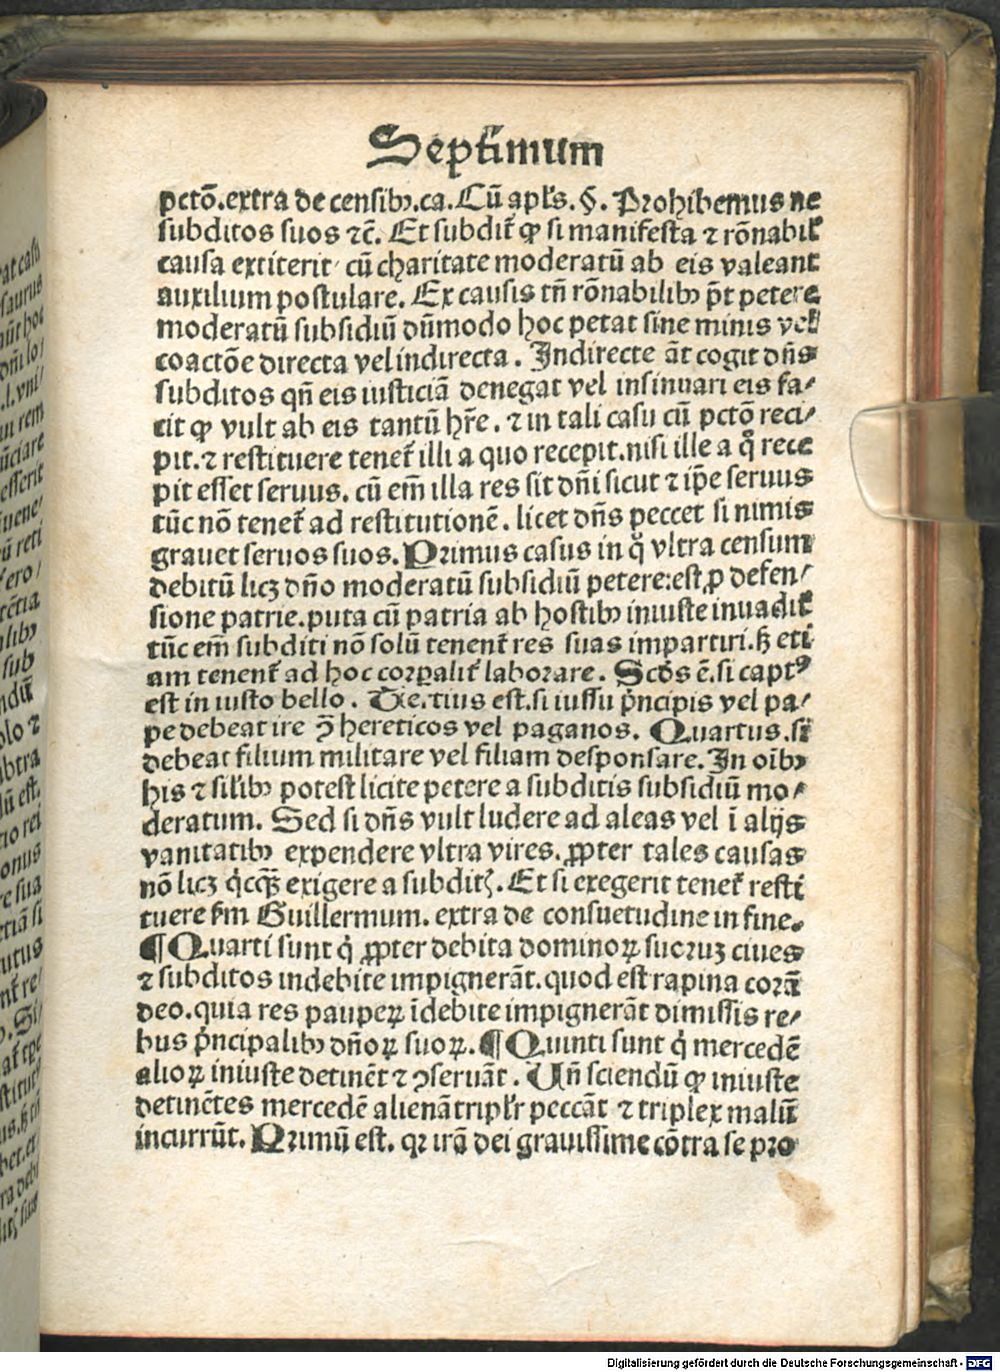 Septimum
pctō.extra de censibꝫ.ca.Cū apl's.§. Prohibemus ne
subditos suos ⁊c̄. Et subdit̄ ꝙ si manifesta ⁊ rōnabil'
causa extiterit cū charitate moderatū ab eis valeant
auxilium postulare. Ex causis tn̄ rōnabilibꝫ pn̄t petere
moderatū subsidiū dūmodo hoc petat sine minis vel
coactōe directa vel indirecta. Indirecte āt cogit dn̄s
subditos qn̄ eis iusticiā denegat vel insinuari eis fa⸗
cit ꝙ vult ab eis tantū hr̄e. ⁊ in tali casu cū pctō reci⸗
pit.⁊ restituere tenet̄ illi a quo recepit.nisi ille a q̊ rece
pit esset seruus. cū em̄ illa res sit dn̄i sicut ⁊ ip̄e seruus
tūc nō tenet̄ ad restitutionē. licet dn̄s peccet si nimis
grauet seruos suos. Primus casus in q̊ vltra censum
debitū licꝫ dn̄o moderatū subsidiū petere:est,ꝓ defen⸗
sione patrie.puta cū patria ab hostibꝫ iniuste inuadit̄
tūc em̄ subditi nō solū tenent̄ res suas impartiri.ꝫ̄ eti
am tenent̄ ad hoc corꝑalit̄ laborare. Scd̄s ē.si captꝰ
est in iusto bello. Tertius est.si iussu pͥncipis vel pa⸗
pe debeat ire ꝯ̄ hereticos vel paganos. Quartus.si
debeat filium militare vel filiam desponsare. In oībꝫ
his ⁊ sil'ibꝫ potest licite petere a subditis subsidiū mo⸗
deratum. Sed si dn̄s vult ludere ad aleas vel ī alijs
vanitatibꝫ expendere vltra vires. ꝓpter tales causas
nō licꝫ qͥcqꝫ̄ exigere a subditꝭ. Et si exegerit tenet̄ resti
tuere fm̄ Guillermum. extra de consuetudine in fine.
¶ Quarti sunt qͥ ꝓpter debita dominoꝝ suoruꝫ ciues
⁊ subditos indebite impignerāt.quod est rapina corā
deo.quia res pauperꝝ īdebite impignerāt dimissis re⸗
bus pͥncipalibꝫ dn̄oꝝ suoꝝ. ¶ Quinti sunt qͥ mercedē
alioꝝ iniuste detinēt ⁊ ꝯseruāt. Un̄ sciendū ꝙ iniuste
detinētes mercedē alienā tripl'r peccāt ⁊ triplex malū
incurrūt. Primū est. qꝛ irā dei grauissime cōtra se pro
Digitalisierung gefördert durch die Deutsche Forschungsgemeinschaft - DFG